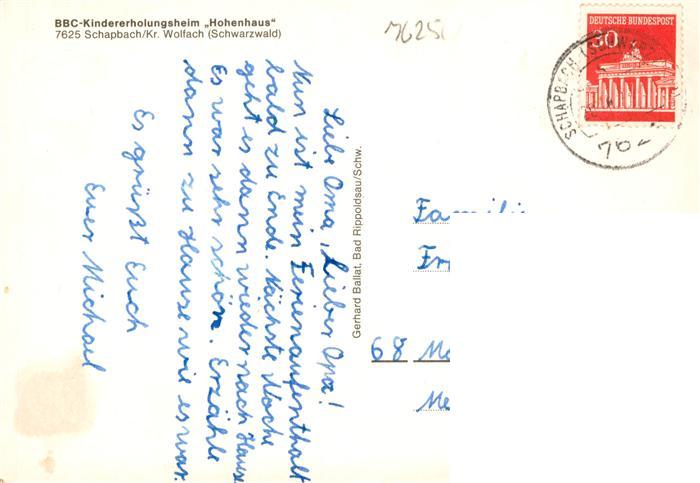 BBC-Kindererholungsheim „Hohenhaus“
7625 Schapbach/Kr. Wolfach (Schwarzwald)
7625
DEUTSCHE BUNDESPOST
30
SCHAPBACH (SCHW
762
Liebe Oma, Lieber Opa!
Nun ist mein Ferienaufenthalt
bald zu Ende. Nächste Woche
geht es dann wieder nach Hause
Es war sehr schön. Erzähle
dann zu Hause wie es war.
Es grüßt Euch
Euer Michael
Gerhard Ballat, Bad Rippoldsau/Schw.
Familie
Fr
68 Ma